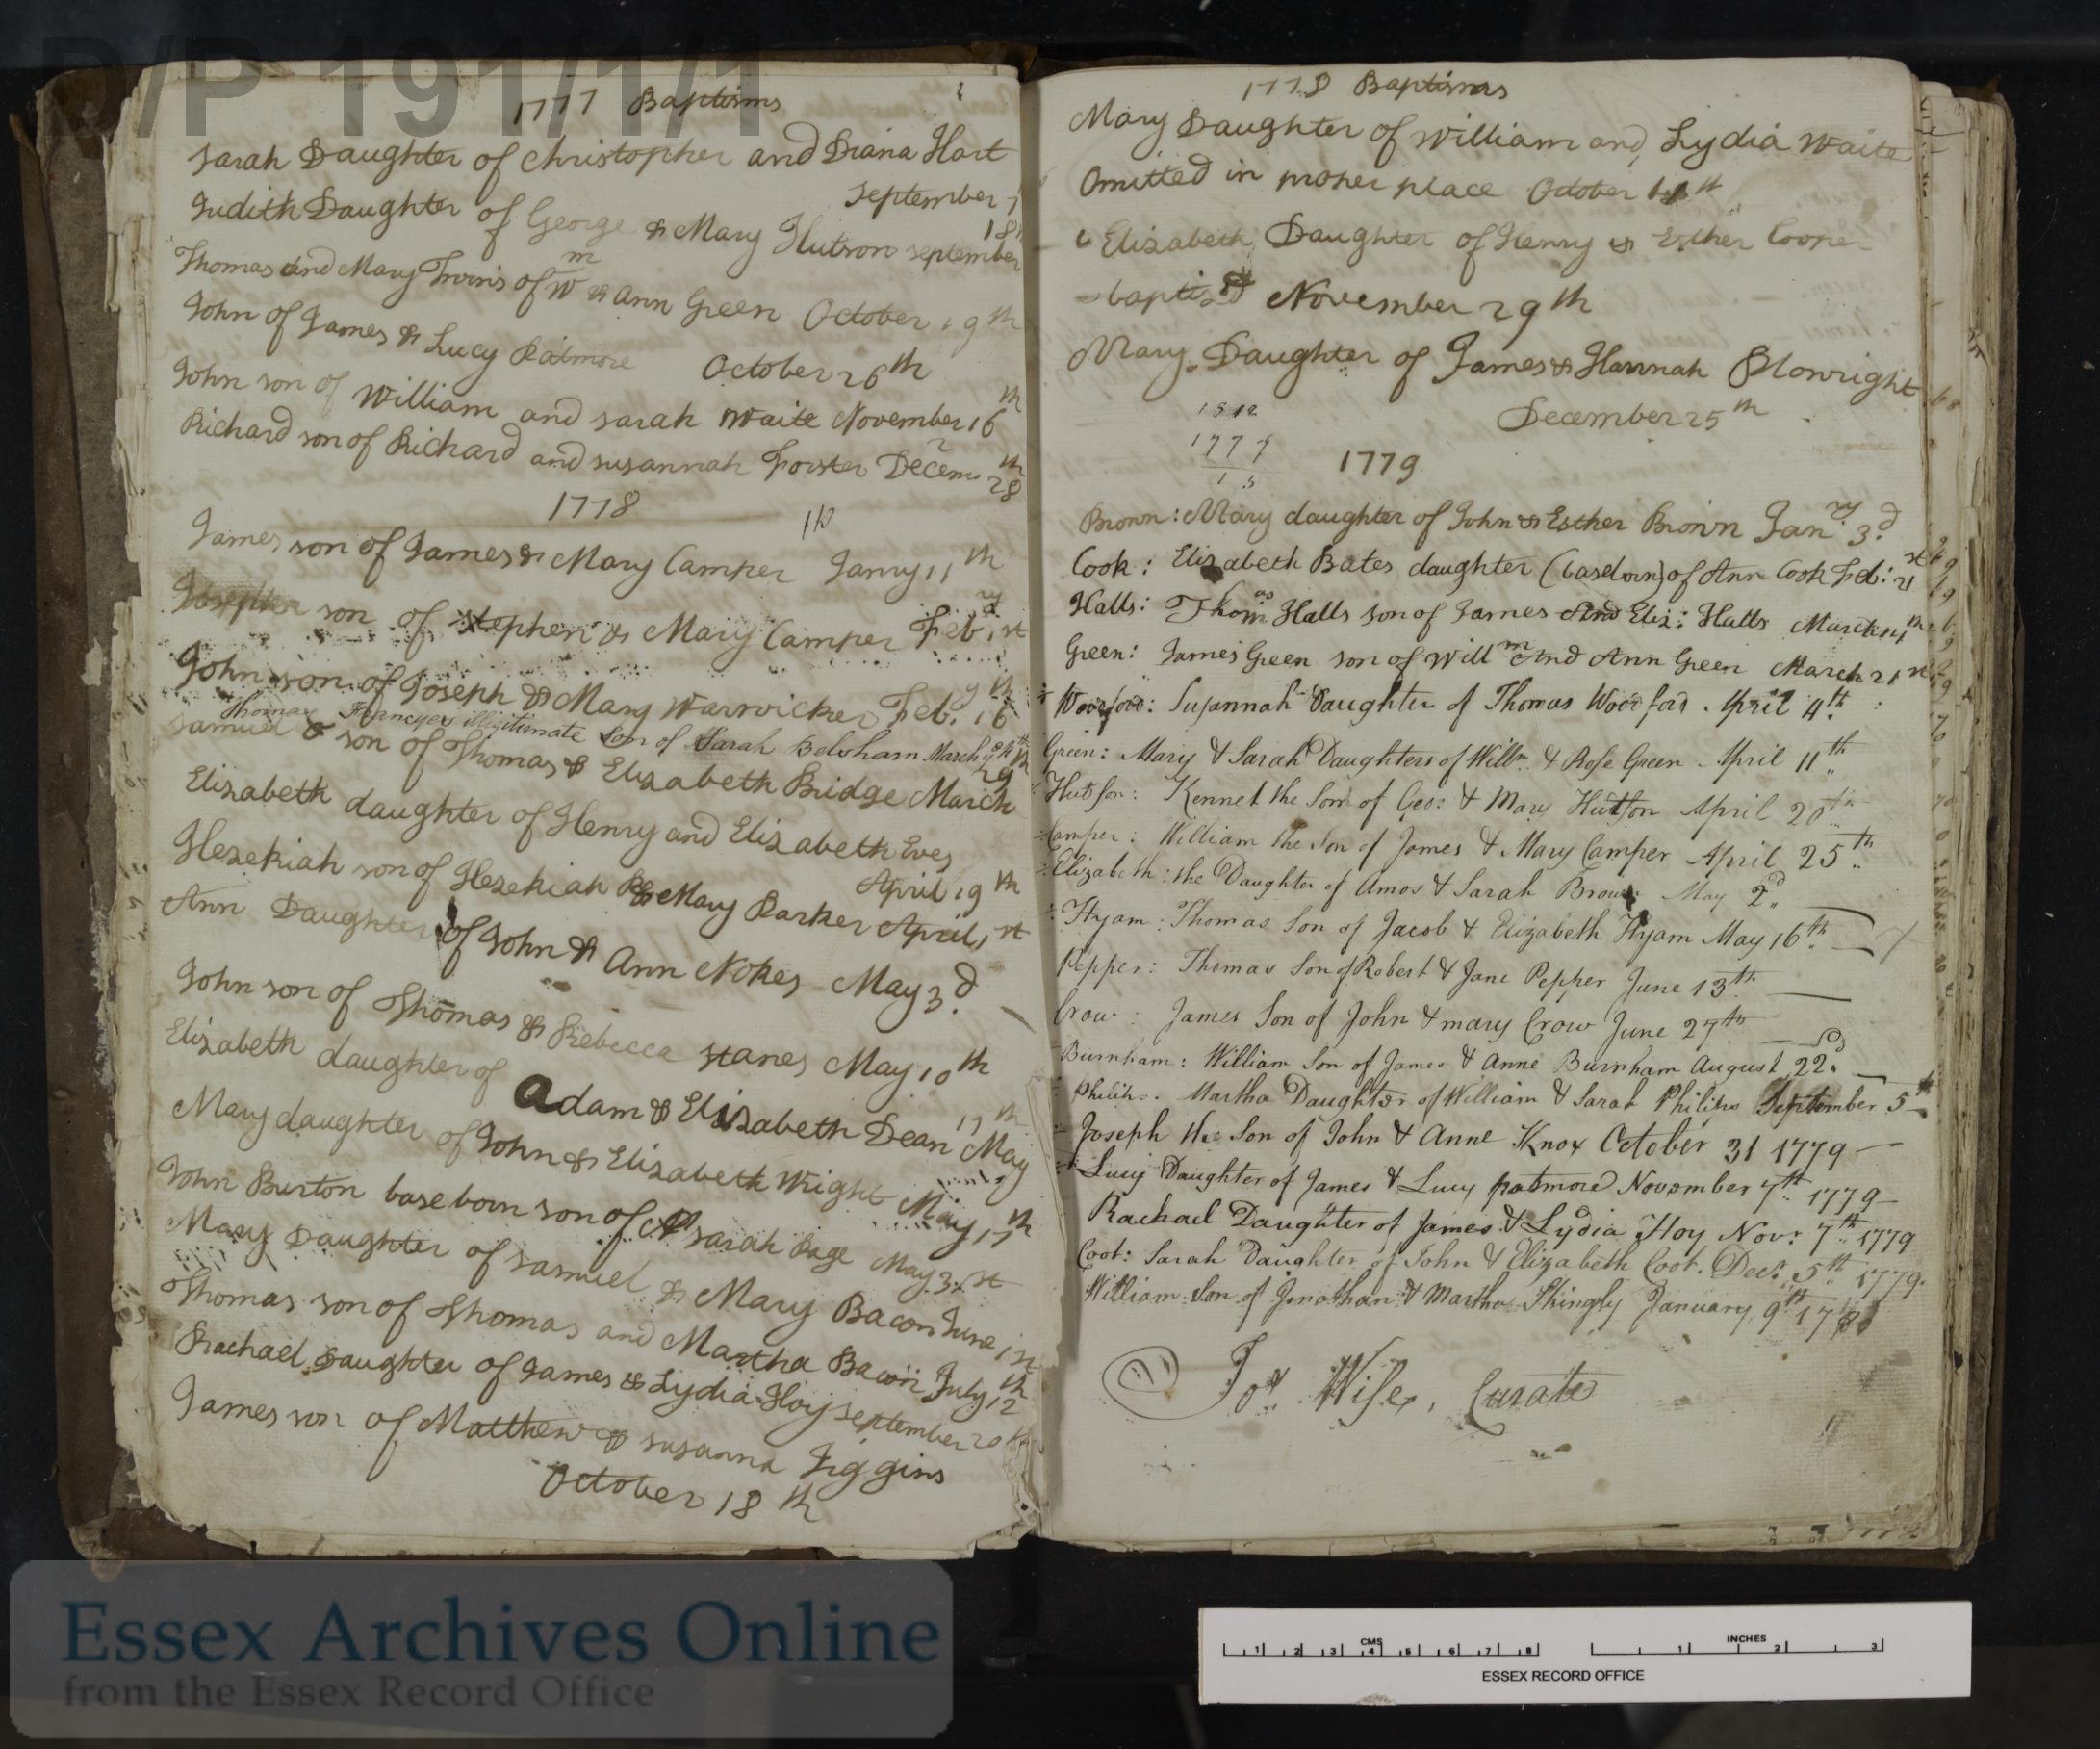 D/P 191/1/1
1777 Baptisms
Sarah Daughter of Christopher and Diana Hart
September
Judith Daughter of George & Mary Hutson September
18
Thomas and Mary Twins of Wm & Ann Green October 19th
John of James & Lucy Patmore October 26th
John son of William and Sarah Waite November 16th
Richard son of Richard and Susannah Forster Decemr 28th
1778
James son of James & Mary Camper Janry 11th
son of Stephen & Mary Camper Feby 1st
John son of Joseph & Mary Warwicker Feby 16th
Thomas illigitimate Son of Sarah Belsham March
Samuel son of Thomas & Elizabeth Bridge March 29th
Elizabeth daughter of Henry and Elizabeth Eves
April 19th
Hezekiah son of Hezekiah & Mary Parker April 1st
Ann Daughter of John & Ann Nokes May 3d
John son of Thomas & Rebecca Stanes May 10th
Elizabeth daughter of Adam & Elizabeth Dean May 17th
Mary daughter of John & Elizabeth Wright May 17th
John Burton base born son of Sarah Page May 31st
Mary Daughter of Samuel & Mary Bacon June 1st
Thomas son of Thomas and Martha Bacon July 12th
Rachael Daughter of James & Lydia Hoy September 20th
James son of Matthew & Susanna Figgins
October 18th
1778 Baptisms
Mary Daughter of William and Lydia Waite
Omitted in proper place October
Elizabeth Daughter of Henry & Esther Coope
baptis'd November 29th
Mary Daughter of James & Hannah Plowright
December 25th
1779
Brown: Mary daughter of John & Esther Brown Janry 3d
Cook: Elizabeth Bates daughter (baseborn) of Ann Cook Feb: 21st
Halls: Thomas Halls son of James And Eliz: Halls March
Green: James Green son of Willm And Ann Green March 21st
Woodford: Susannah Daughter of Thomas Woodford April 4th
Green: Mary & Sarah Daughters of Willm & Rose Green April 11th
Hutson: Kennet the Son of Geo: & Mary Hutson April 20th
Camper: William the Son of James & Mary Camper April 25th
Elizabeth: the Daughter of Amos & Sarah Brown May 2d
Hyam: Thomas Son of Jacob & Elizabeth Hyam May 16th
Pepper: Thomas Son of Robert & Jane Pepper June 13th
Crow: James Son of John & mary Crow June 27th
Burnham: William Son of James & Anne Burnham August 22d
Philips. Martha Daughter of William & Sarah Philips September 5th
Joseph the Son of John & Anne Knox October 31 1779
Lucy Daughter of James & Lucy patmore November 7th 1779
Rachael Daughter of James & Lydia Hoy Nov: 7th 1779
Coot: Sarah Daughter of John & Elizabeth Coot. Decr 5th 1779.
William Son of Jonathan & Martha Shingly January 9th 1780
Jos. Wise, Curate
Essex Archives Online
from the Essex Record Office
CMS
1 2 3 4 5 6 7 8
INCHES
1 2 3
ESSEX RECORD OFFICE